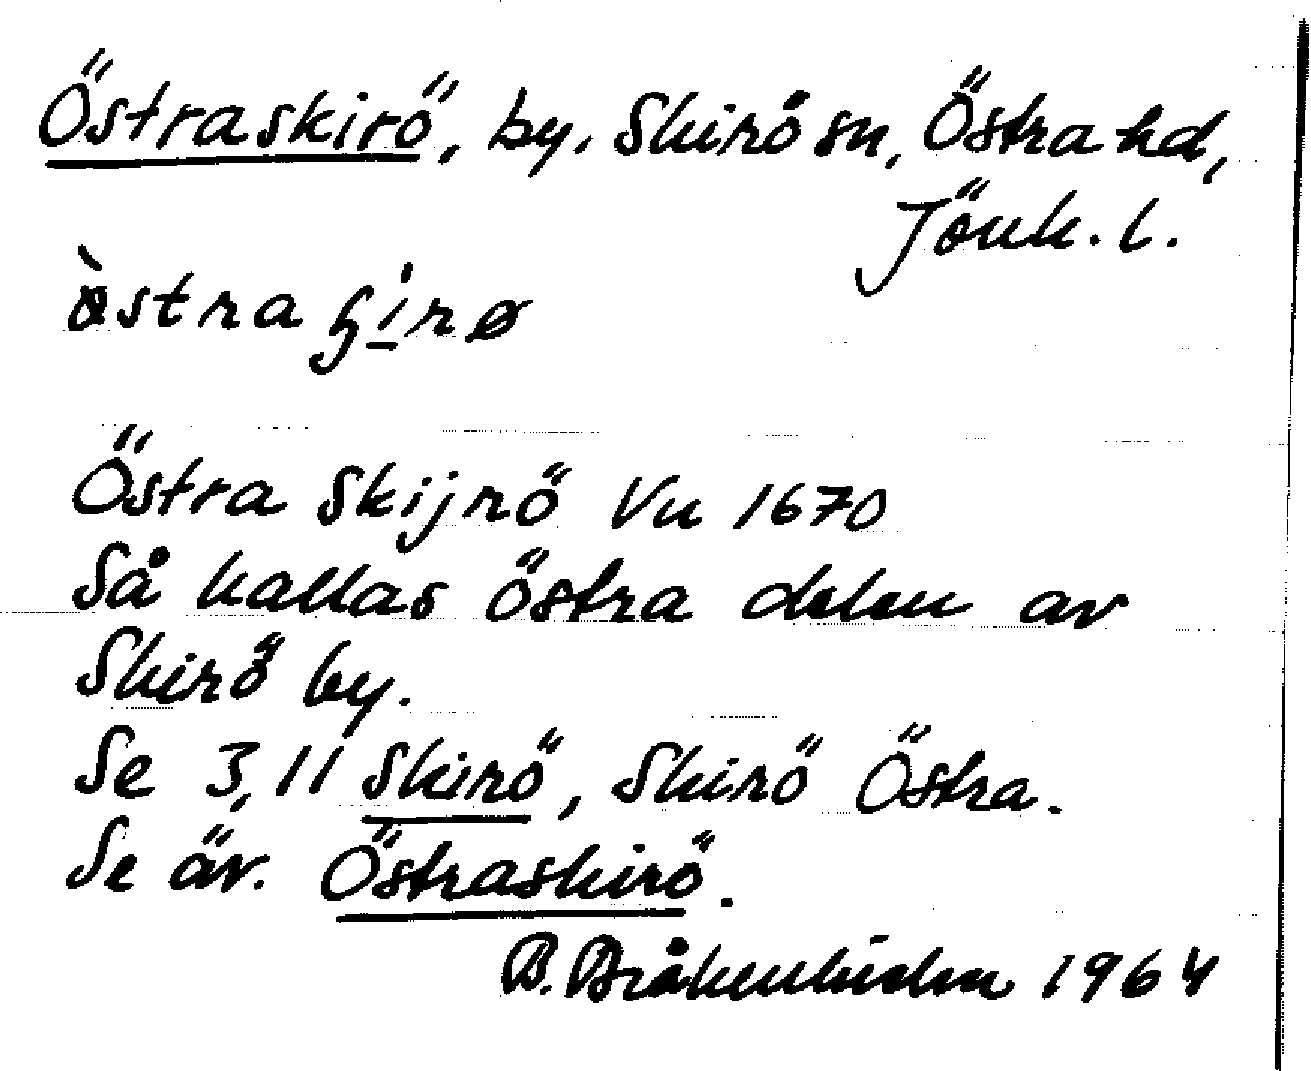 Östraskirö, by, Skirö sn, Östra hd,
Jönk. l.
Östra Skijrö Vu 1670
Så kallas östra delen av
Skirö by.
Se 3,11 Skirö, Skirö Östra.
Se äv. Östraskirö.
B. Bråkenhielm 1964